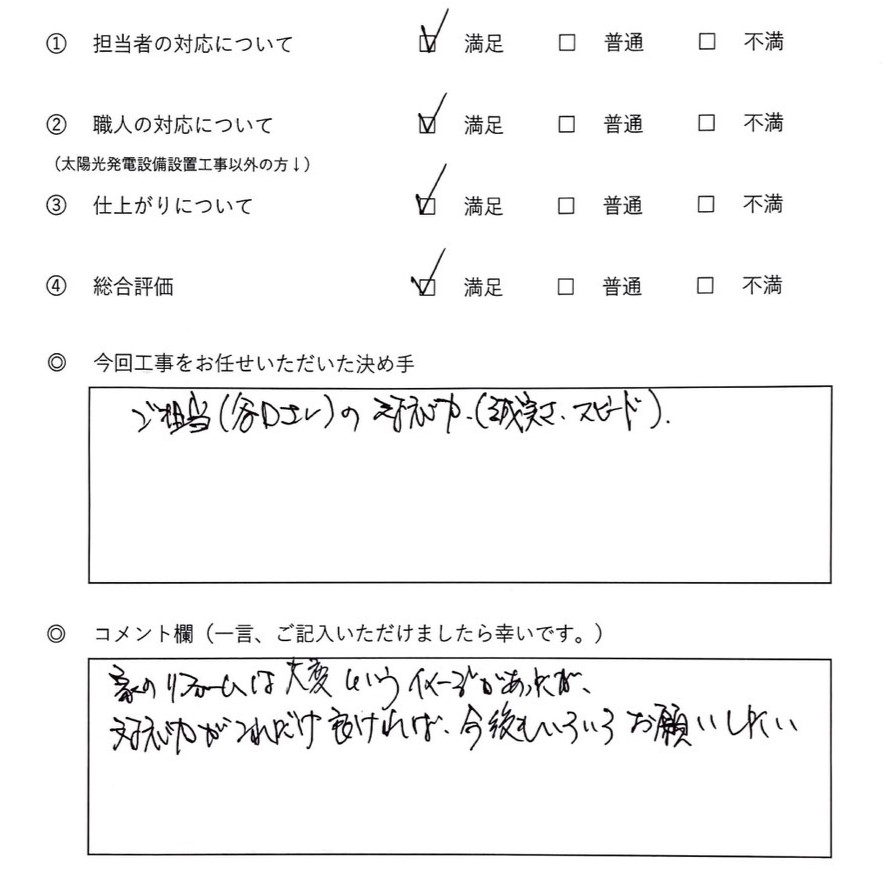 ① 担当者の対応について ☑ 満足 □ 普通 □ 不満
② 職人の対応について ☑ 満足 □ 普通 □ 不満
（太陽光発電設備設置工事以外の方↓）
③ 仕上がりについて ☑ 満足 □ 普通 □ 不満
④ 総合評価 ☑ 満足 □ 普通 □ 不満
◎ 今回工事をお任せいただいた決め手
ご担当(谷口さん)の対応力.(誠実さ、スピード).
◎ コメント欄（一言、ご記入いただけましたら幸いです。）
家のリフォームは大変というイメージがあったが、
対応力がこれだけ良ければ、今後もいろいろお願いしたい